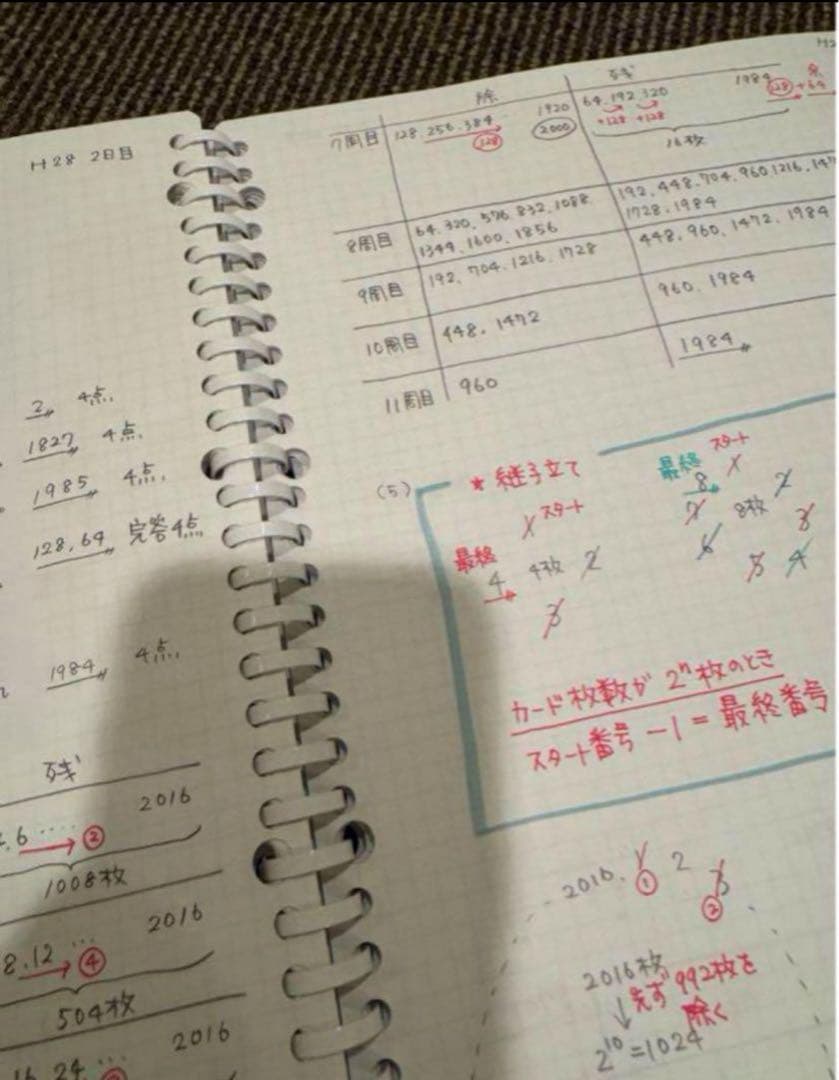 H28 2日目
2 4点
1827 4点
1985 4点
128,64 完答4点
1984 4点
残
6 ・・・・ ② 2016
1008枚
8.12 ・・・ ④ 2016
504枚
16 24 ・・・ 2016
除 残
7周目 128.256.384 128 1920 2000 64.192.320 +128 +128 1984 128 +64
16枚
8周目 64.320.576.832.1088 192.448.704.960.1216.147
1344.1600.1856 1728.1984
9周目 192.704.1216.1728 448.960.1472.1984
10周目 448.1472 960.1984
11周目 960 1984
(5) * 継子立て
1 スタート
最終
4 4枚 2
3
最終 スタート
8 1
7 8枚 2
6 3
5 4
カード枚数が 2ⁿ枚のとき
スタート番号 −1 = 最終番号
2016. 1 2 3
① ②
2016枚
↓ 先ず 992枚を
除く
2¹⁰=1024